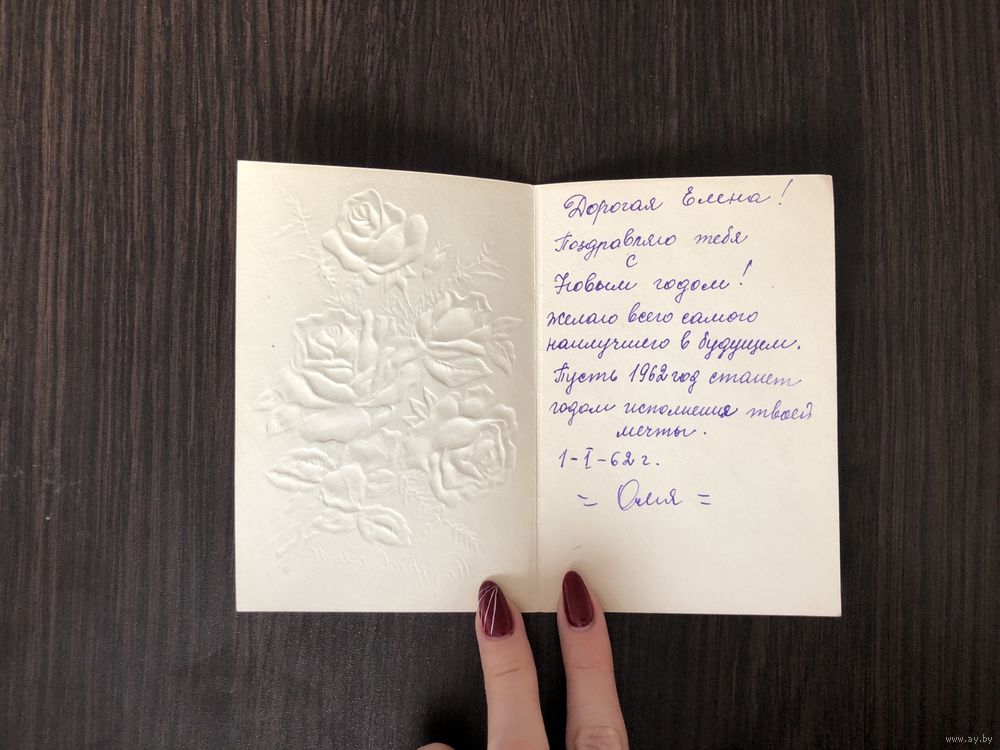 Дорогая Елена!
Поздравляю тебя
с
Новым годом!
Желаю всего самого
наилучшего в будущем.
Пусть 1962 год станет
годом исполнения твоей
мечты.
1-I-62 г.
= Оля =
www.ay.by